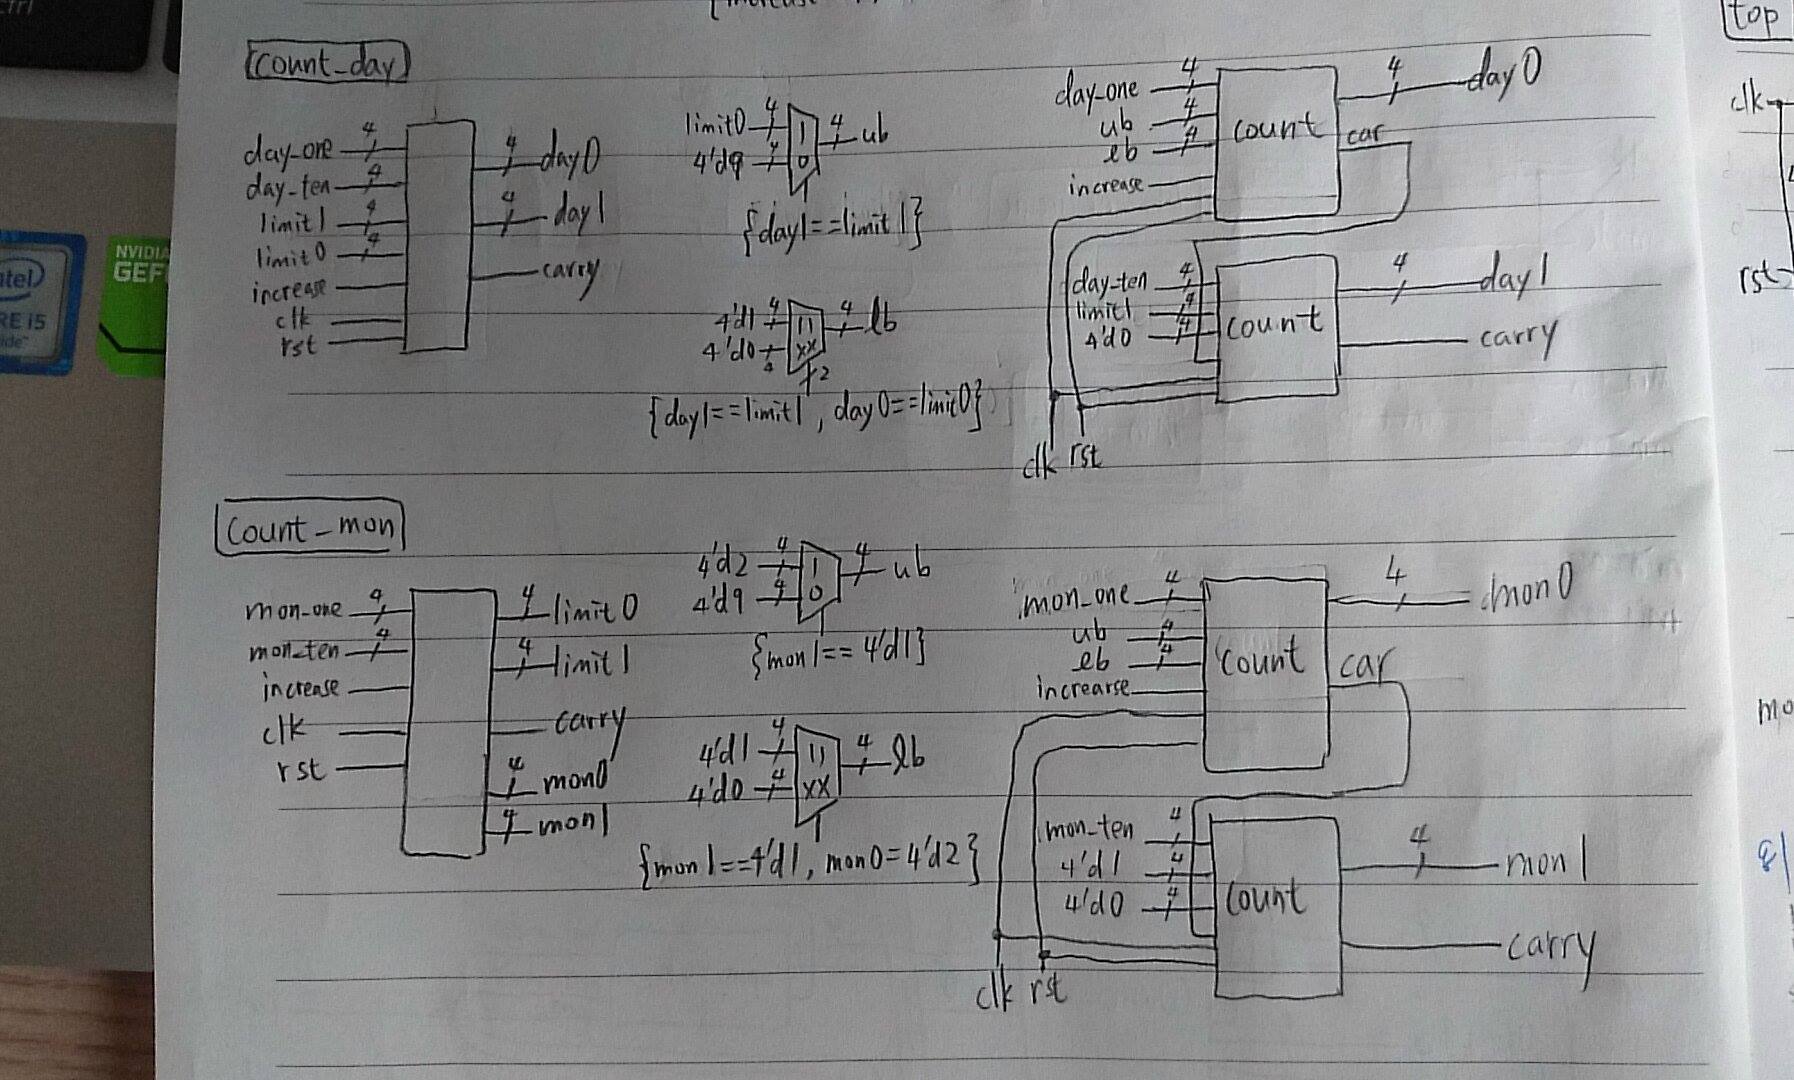 top
count_day
day_one 4
day_ten 4
limit1 4
limit0 4
increase
clk
rst
4 day0
4 day1
carry
limit0 4 1 4 ub
4'd9 4 0
{day1==limit1}
4'd1 4 11 4 lb
4'd0 4 xx
2
{day1==limit1, day0==limit0}
day_one 4
ub 4
lb 4
increase
count
4 day0
car
day_ten 4
limit1 4
4'd0 4
count
4 day1
carry
clk rst
clk
rst
intel
NVIDIA
count_mon
mon_one 4
mon_ten 4
increase
clk
rst
4 limit0
4 limit1
carry
4 mon0
4 mon1
4'd2 4 1 4 ub
4'd9 4 0
{mon1==4'd1}
4'd1 4 11 4 lb
4'd0 4 xx
{mon1==4'd1, mon0=4'd2}
mon_one 4
ub 4
lb 4
increarse
count
4 mon0
car
mon_ten 4
4'd1 4
4'd0 4
count
4 mon1
carry
clk rst